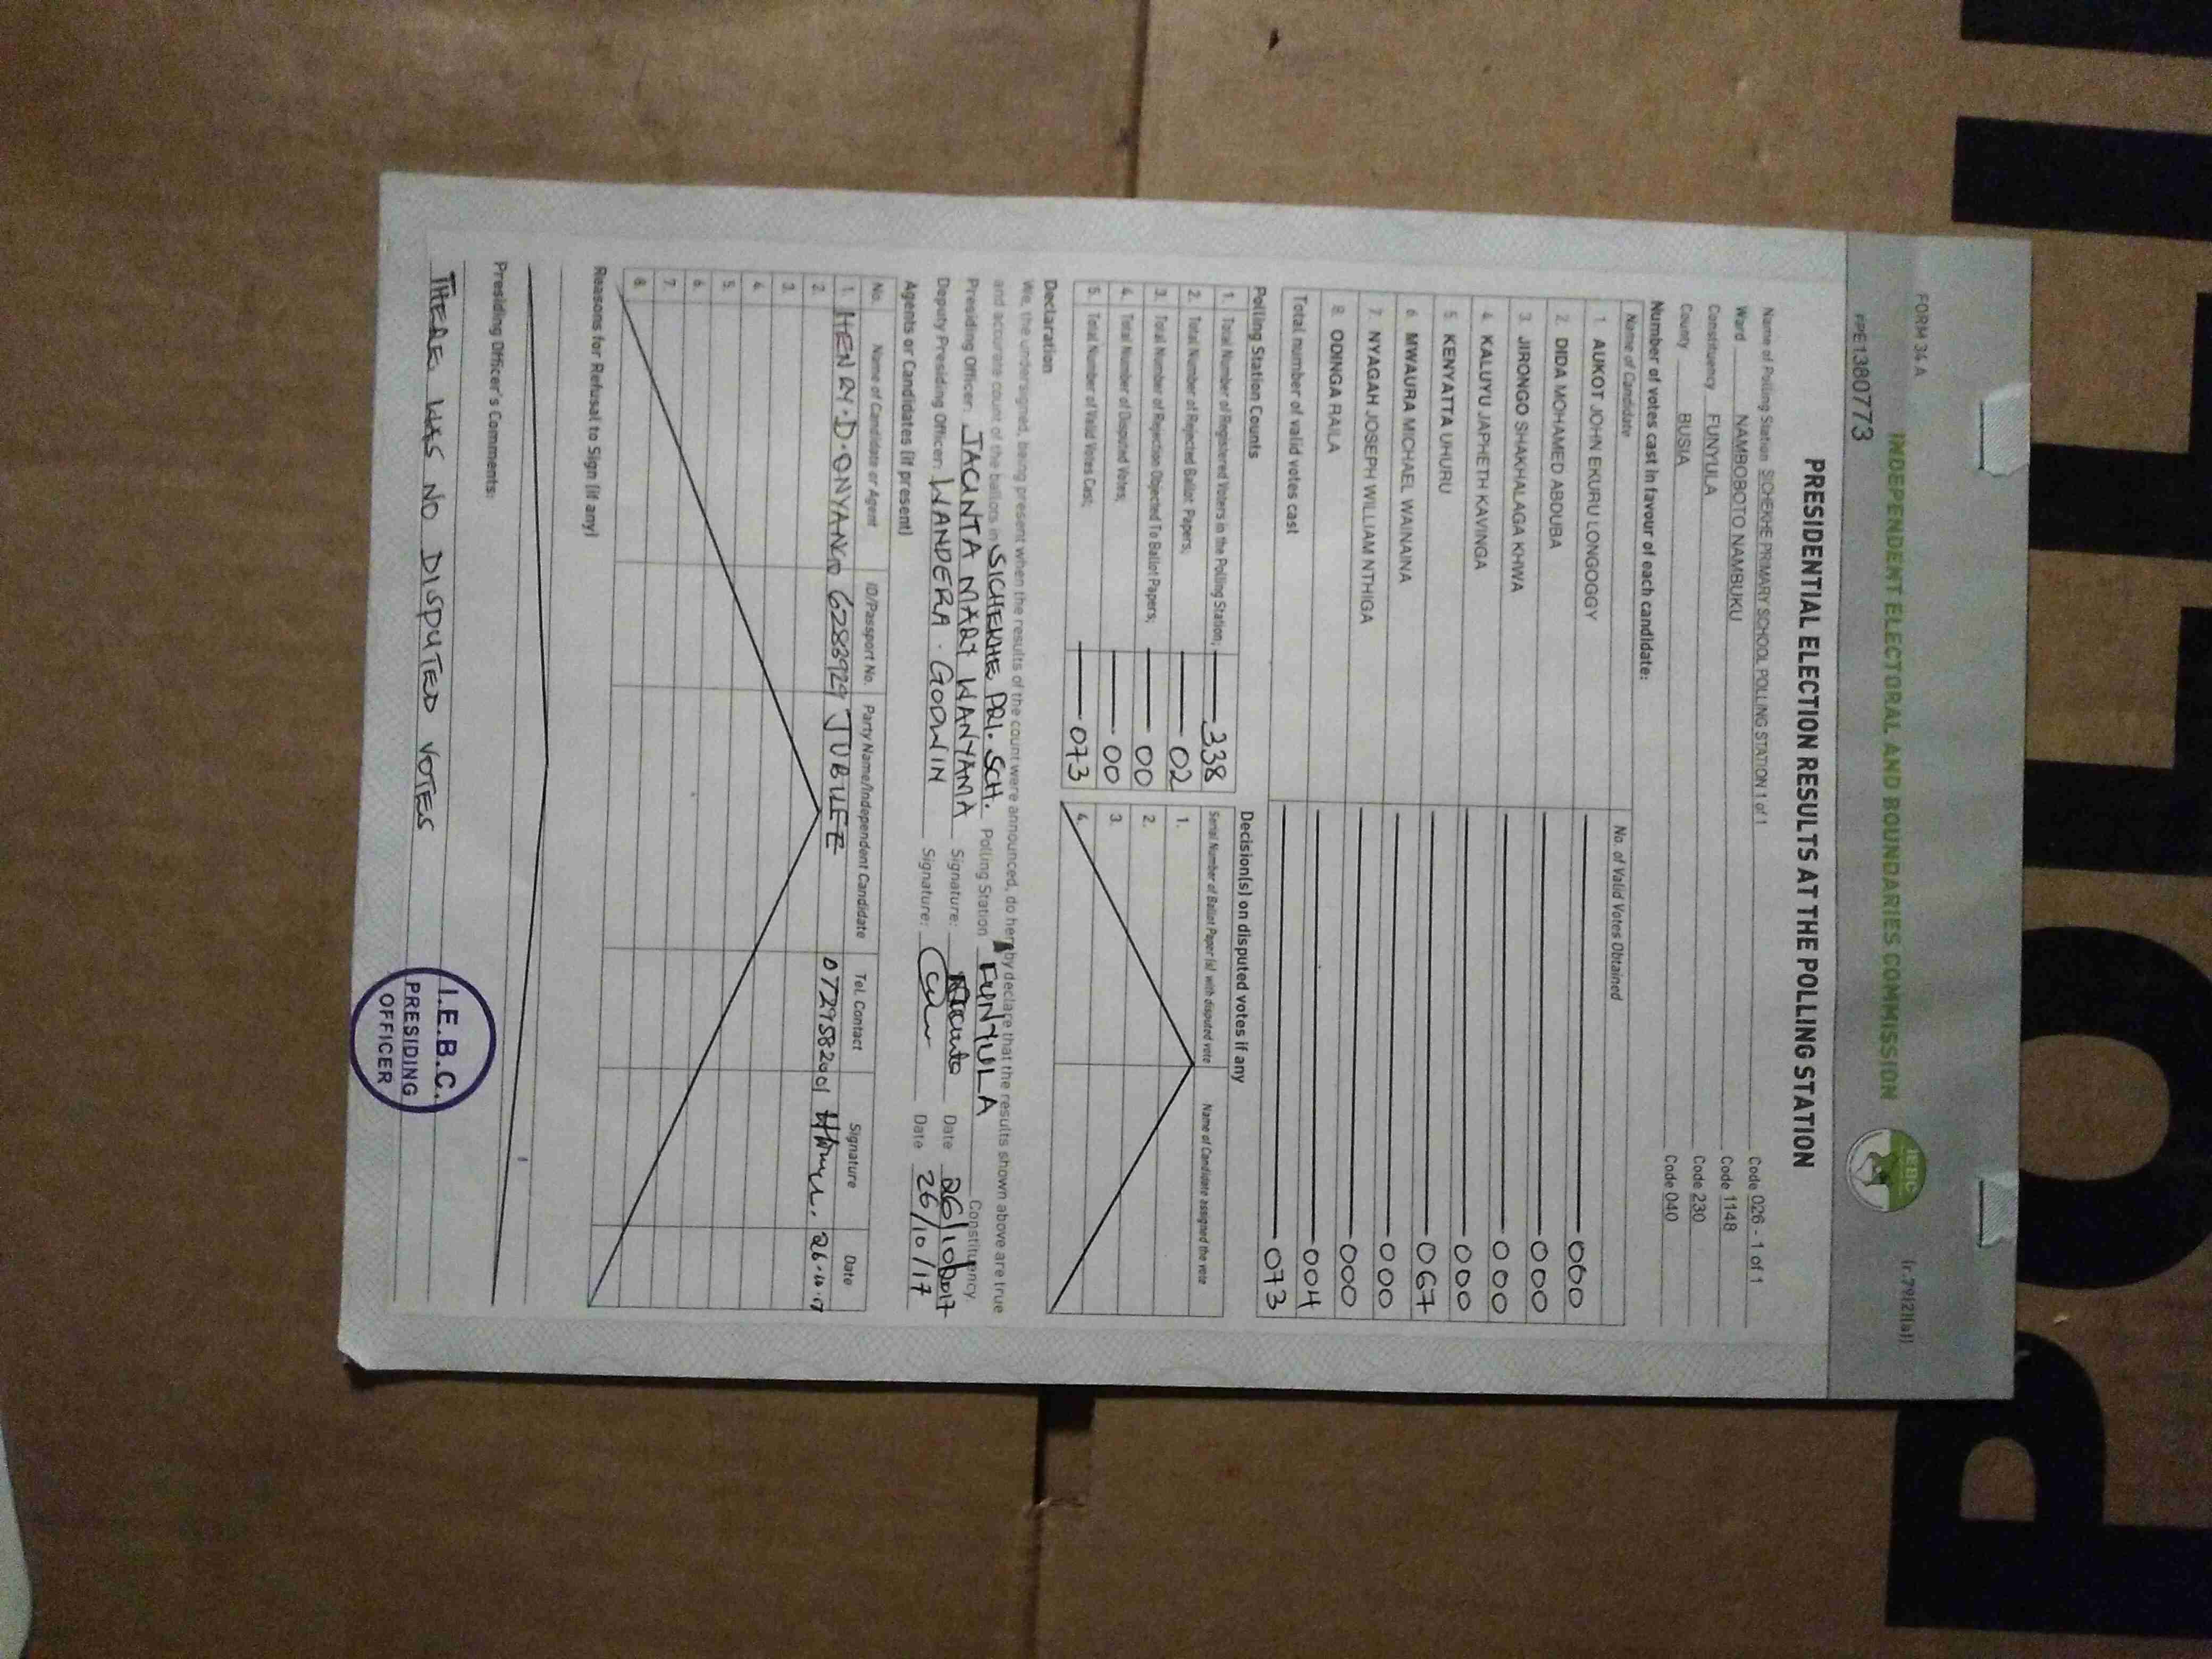 FORM 34 A (r.79(2)(a))
INDEPENDENT ELECTORAL AND BOUNDARIES COMMISSION
IEBC
PPE1380773
PRESIDENTIAL ELECTION RESULTS AT THE POLLING STATION
Name of Polling Station SICHEKHE PRIMARY SCHOOL POLLING STATION 1 of 1 Code 026 - 1 of 1
Ward NAMBOBOTO NAMBUKU Code 1148
Constituency FUNYULA Code 230
County BUSIA Code 040
Number of votes cast in favour of each candidate:
Name of Candidate No. of Valid Votes Obtained
1. AUKOT JOHN EKURU LONGOGGY 000
2. DIDA MOHAMED ABDUBA 000
3. JIRONGO SHAKHALAGA KHWA 000
4. KALUYU JAPHETH KAVINGA 000
5. KENYATTA UHURU 067
6. MWAURA MICHAEL WAINAINA 000
7. NYAGAH JOSEPH WILLIAM NTHIGA 000
8. ODINGA RAILA 004
Total number of valid votes cast 073
Polling Station Counts
1. Total Number of Registered Voters in the Polling Station; 338
2. Total Number of Rejected Ballot Papers; 02
3. Total Number of Rejection Objected To Ballot Papers; 00
4. Total Number of Disputed Votes; 00
5. Total Number of Valid Votes Cast; 073
Decision(s) on disputed votes if any
Serial Number of Ballot Paper (s) with disputed vote Name of Candidate assigned the vote
1.
2.
3.
4.
Declaration
We, the undersigned, being present when the results of the count were announced, do hereby declare that the results shown above are true
and accurate count of the ballots in SICHEKHE PRI. SCH. Polling Station FUNYULA Constituency
Presiding Officer: JACINTA MARY WANYAMA Signature: Date 26/10/2017
Deputy Presiding Officer: WANDERA. GODWIN Signature: Date 26/10/17
Agents or Candidates (if present)
No. Name of Candidate or Agent ID/Passport No. Party Name/Independent Candidate Tel. Contact Signature Date
1. HENRY.D.ONYANGO 6283929 JUBILEE 0729582001 26.10.17
2.
3.
4.
5.
6.
7.
8.
Reasons for Refusal to Sign (if any)
Presiding Officer's Comments:
THERE WAS NO DISPUTED VOTES
I.E.B.C.
PRESIDING
OFFICER